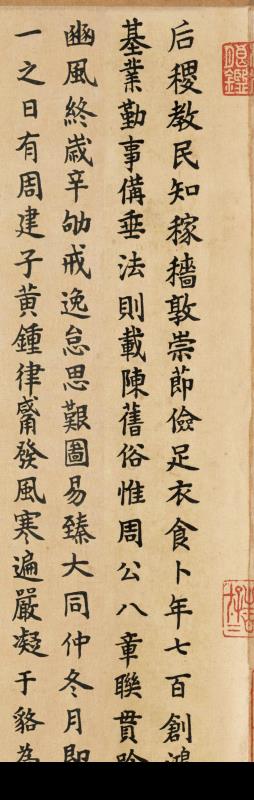 后稷教民知稼穡敦崇節儉足衣食卜年七百創鴻
基業勤事備垂法則載陳舊俗惟周公八章聯貫
豳風終歲辛劬戒逸怠思艱圖易臻大同仲冬月即
一之日有周建子黃鍾律觱發風寒遍嚴凝于貉為